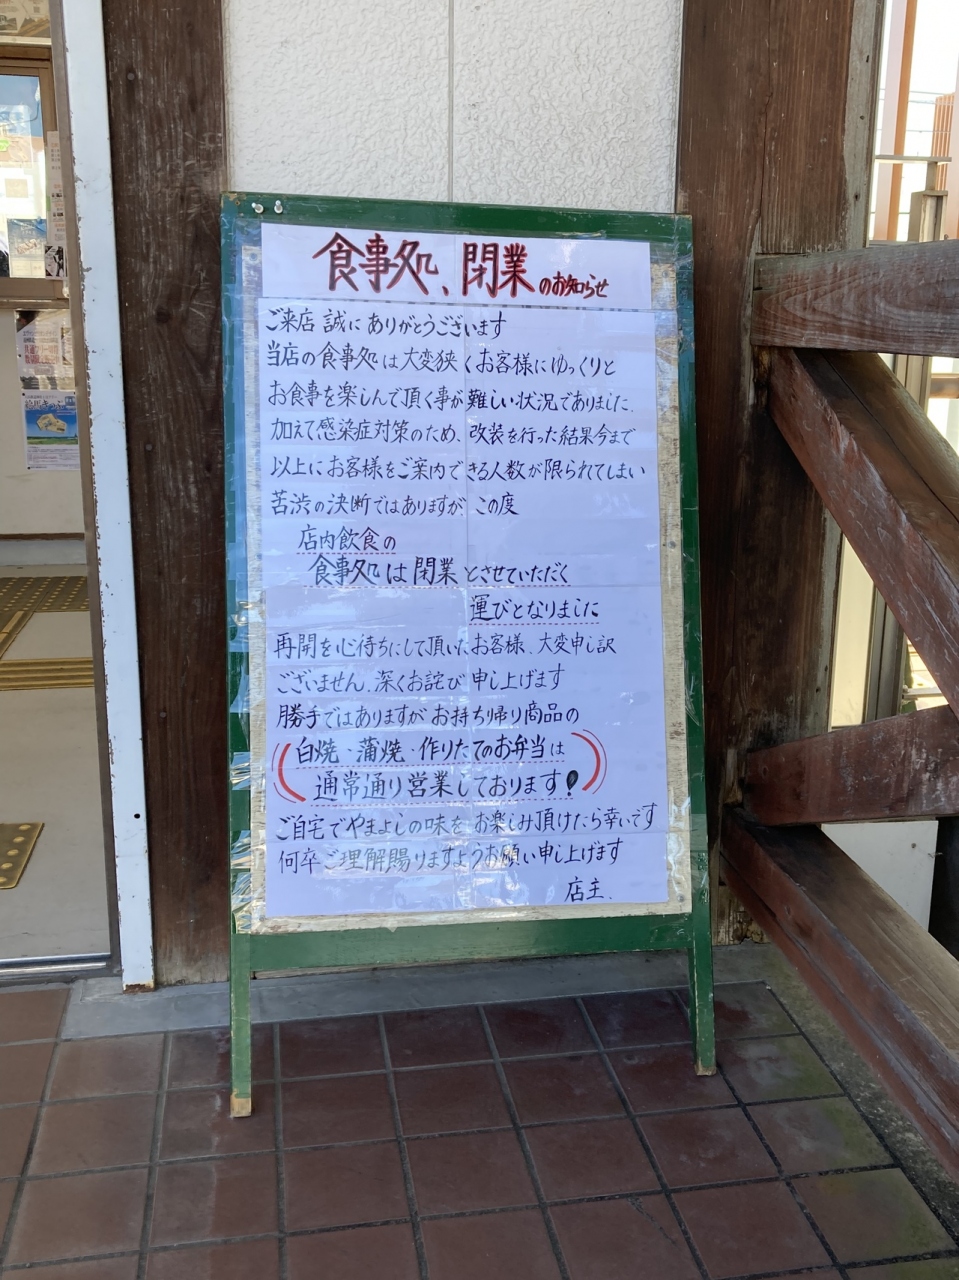 食事処、閉業のお知らせ
ご来店 誠に ありがとうございます
当店の食事処は大変狭くお客様にゆっくりと
お食事を楽しんで頂く事が難しい状況でありました、
加えて感染症対策のため、改装を行った結果今まで
以上にお客様をご案内できる人数が限られてしまい
苦渋の決断ではありますが この度
店内飲食の
食事処は閉業とさせていただく
運びとなりました
再開を心待ちにして頂いたお客様、大変申し訳
ございません、深くお詫び申し上げます
勝手ではありますがお持ち帰り商品の
(白焼・蒲焼・作りたてのお弁当は
通常通り営業しております!)
ご自宅でやまよしの味をお楽しみ頂けたら幸いです
何卒ご理解賜りますようお願い申し上げます
店主.